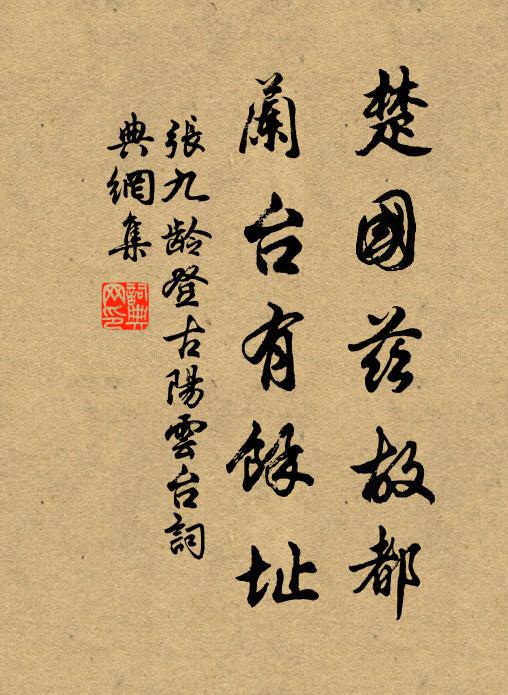 楚國茲故都
蘭台有餘址
張九齡登古陽雲台詞
典網集
詞典网印